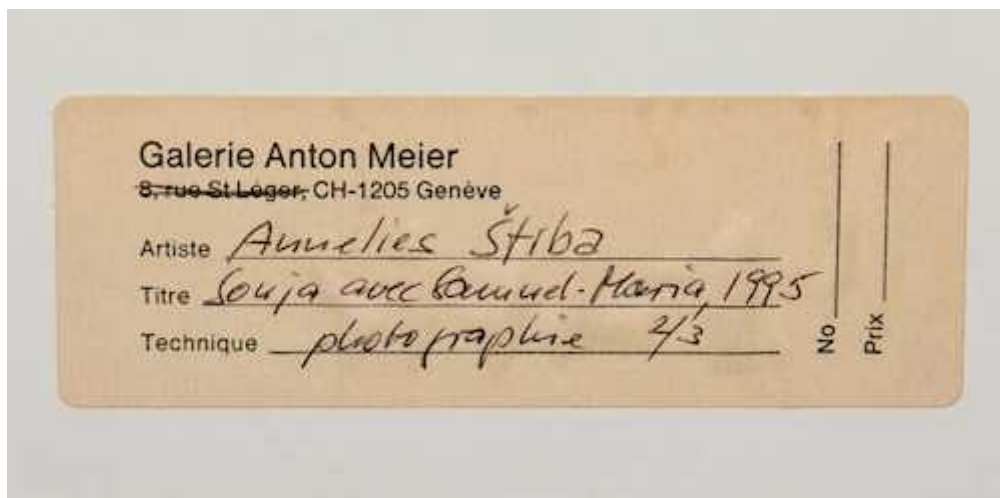 Galerie Anton Meier
8, rue St Léger, CH-1205 Genève
Artiste Annelies Štrba
Titre Sonja avec Samuel-Maria, 1995
Technique photographie 2/3
No
Prix